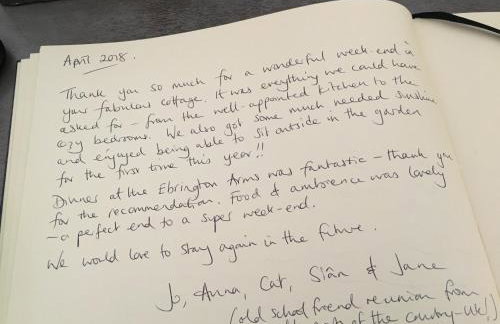 April 2018.
Thank you so much for a wonderful week-end in
your fabulous cottage. It was everything we could have
asked for - from the well-appointed kitchen to the
cozy bedrooms. We also got some much needed sunshine
and enjoyed being able to sit outside in the garden
for the first time this year!!
Dinner at the Ebrington Arms was fantastic - thank you
for the recommendation. Food & ambience was lovely
- a perfect end to a super week-end.
We would love to stay again in the future.
Jo, Anna, Cat, Siân & Jane
(old school friend reunion from
of the country - UK!